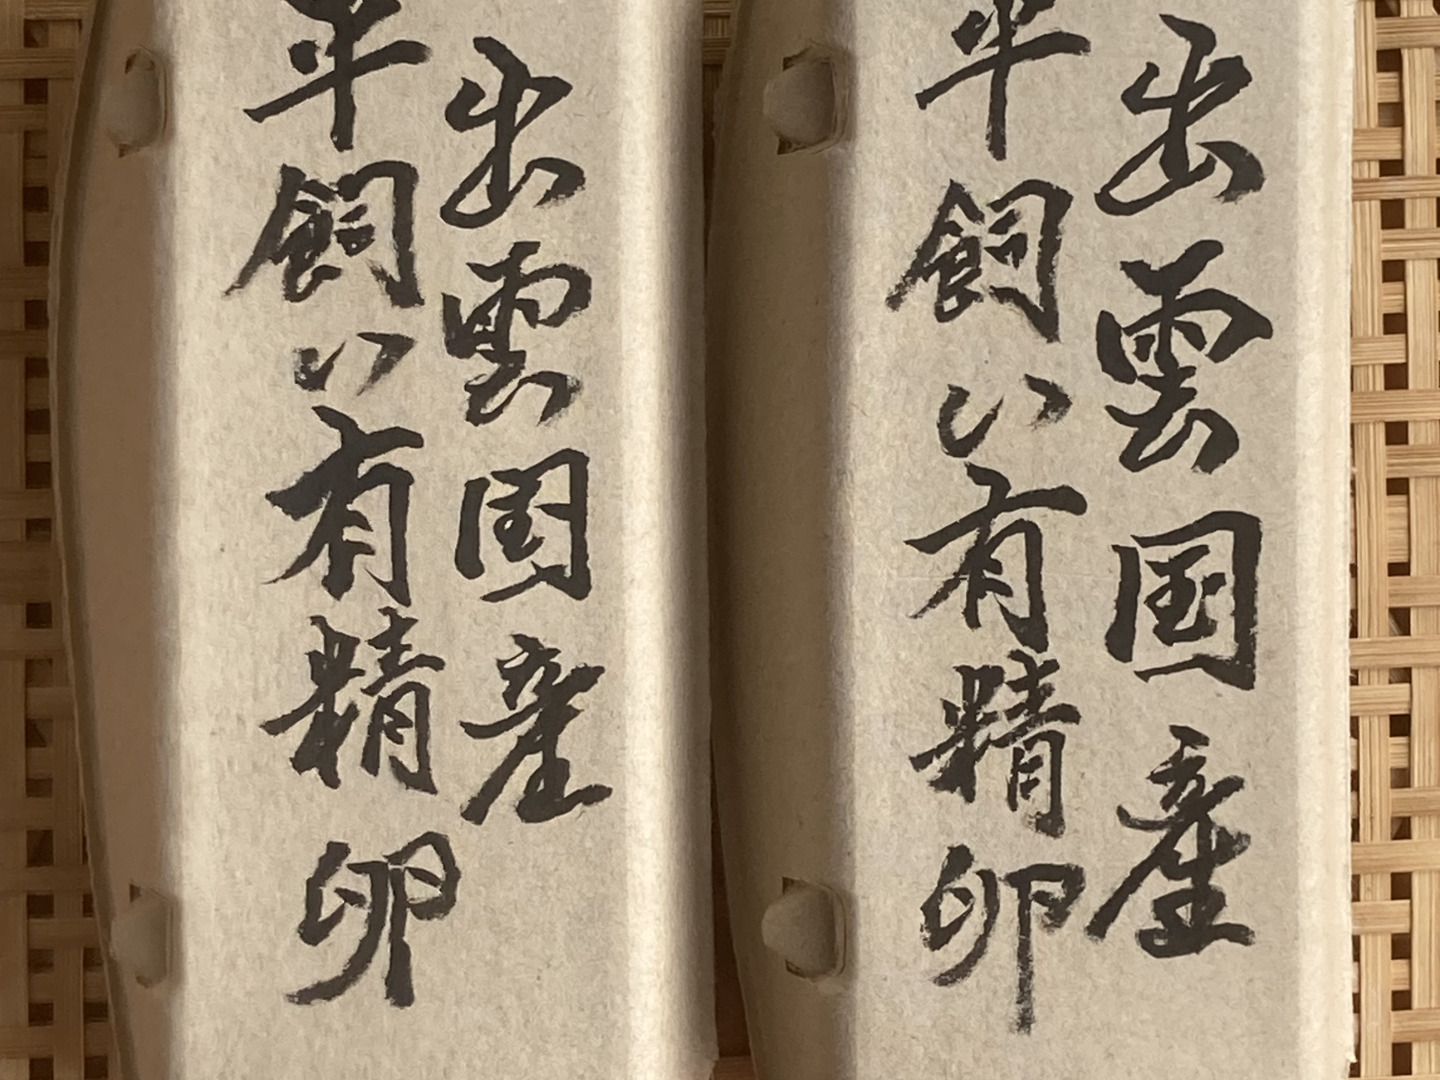 出雲国産
平飼い有精卵
出雲国産
平飼い有精卵